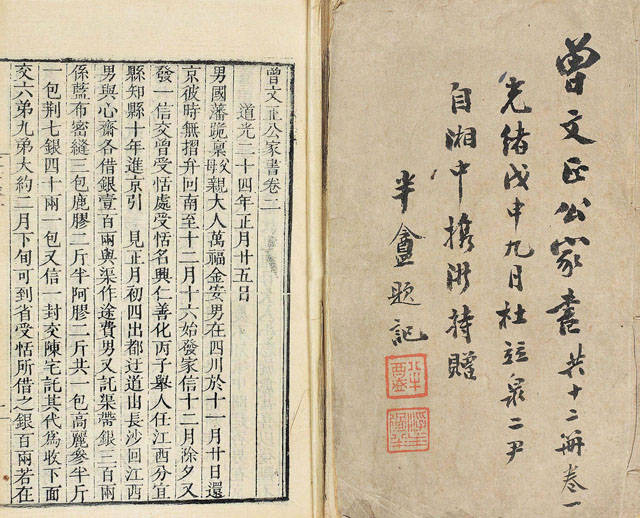 曾文正公家書共十二冊卷一
光緒戊申九月杜竝泉二尹
自湘中攜浙持贈
半盦題記
曾文正公家書卷二
道光二十四年正月廿五日
男國藩跪稟父母親大人萬福金安男在四川於十一月廿日還
京彼時無摺弁回南至十二月十六始發家信十二月除夕又
發一信交曾受恬處受恬名興仁善化丙子舉人任江西分宜
縣知縣十年進京引 見正月初四出都迂道由長沙回江西
男與心齋各借銀壹百兩與渠作途費男又託渠帶銀三百兩
係藍布密縫三包鹿膠二斤半阿膠二斤共一包高麗參半斤
一包荆七銀四十兩一包又信一封交陳宅託其代為收下面
交六弟九弟大約二月下旬可到省受恬所借之銀百兩若在